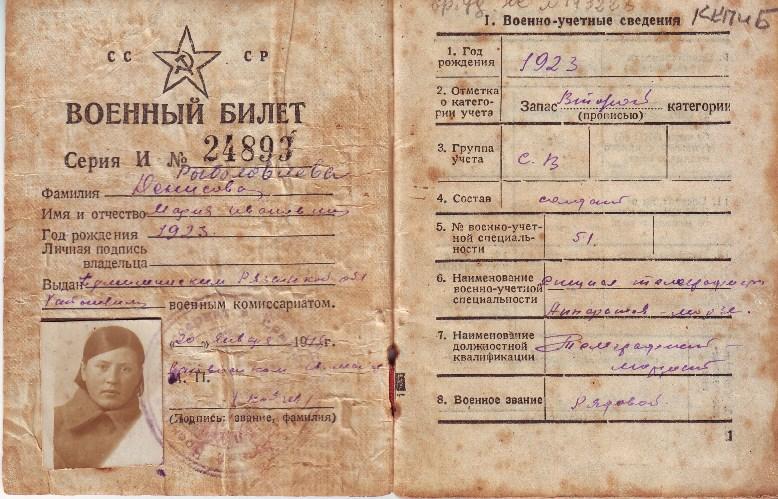 СС СР
ВОЕННЫЙ БИЛЕТ
Серия И № 24893
Рыболовлева
Фамилия Денисова
Имя и отчество Мария Ивановна
Год рождения 1923.
Личная подпись
владельца
Выдан Рязанской обл
военным комиссариатом.
"20" января 19 г.
М. П.
(Подпись: звание, фамилия)
ККПиБ
I. Военно-учетные сведения
1. Год
рождения 1923
2. Отметка
о катего-
рии учета
Запас Второй категории
(прописью)
3. Группа
учета С. В
4. Состав солдат
5. № военно-учет-
ной специаль-
ности 51.
6. Наименование
военно-учетной
специальности
Аппаратов - морзе.
7. Наименование
должностной
квалификации
Телеграфист -
морзист
8. Военное звание Рядовой
1